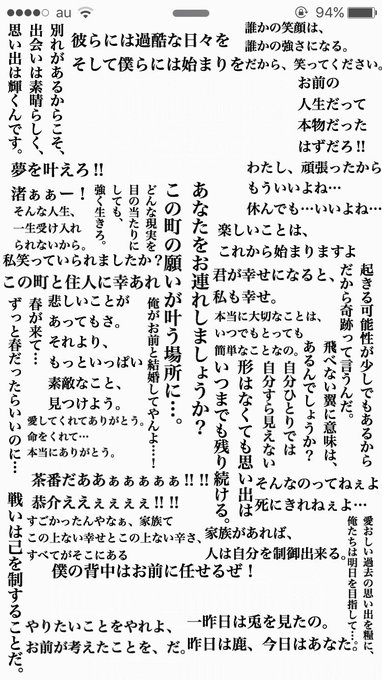 au
94%
別れがあるからこそ、
出会いは素晴らしく、
思い出は輝くんです。
彼らには過酷な日々を
そして僕らには始まりを
誰かの笑顔は、
誰かの強さになる。
だから、笑ってください。
お前の
人生だって
本物だった
はずだろ!!
夢を叶えろ!!
渚ぁぁー!
そんな人生、
一生受け入れ
られないから。
どんな現実を
目の当たりに
しても、
強く生きろ。
あなたをお連れしましょうか?
この町の願いが叶う場所に…。
わたし、頑張ったから
もういいよね…
休んでも…いいよね…
楽しいことは、
これから始まりますよ
私笑っていられましたか?
この町と住人に幸あれ
君が幸せになると、
私も幸せ。
起きる可能性が少しでもあるから
だから奇跡って言うんだ。
春が来て…
ずっと春だったらいいのに…
悲しいことが
あってもさ。
それより、
もっといっぱい
素敵なこと、
見つけよう。
俺がお前と結婚してやんよ…!
本当に大切なことは、
いつでもとっても
簡単なことなの。
飛べない翼に意味は、
あるんでしょうか?
自分ひとりでは
自分すら見えない
形はなくても思い出は
いつまでも残り続ける。
愛してくれてありがとう。
命をくれて…
本当にありがとう。
茶番だああぁぁぁぁぁ!!!
恭介ええぇぇぇぇ!!!
そんなのってねぇよ
死にきれねぇよ…
すごかったんやなぁ、家族て
この上ない幸せとこの上ない辛さ、
すべてがそこにある
家族があれば、
人は自分を制御出来る。
愛おしい過去の思い出を糧に、
俺たちは明日を目指して…。
僕の背中はお前に任せるぜ!
戦いは己を制することだ。
やりたいことをやれよ、
お前が考えたことを、だ。
一昨日は兎を見たの。
昨日は鹿、今日はあなた。